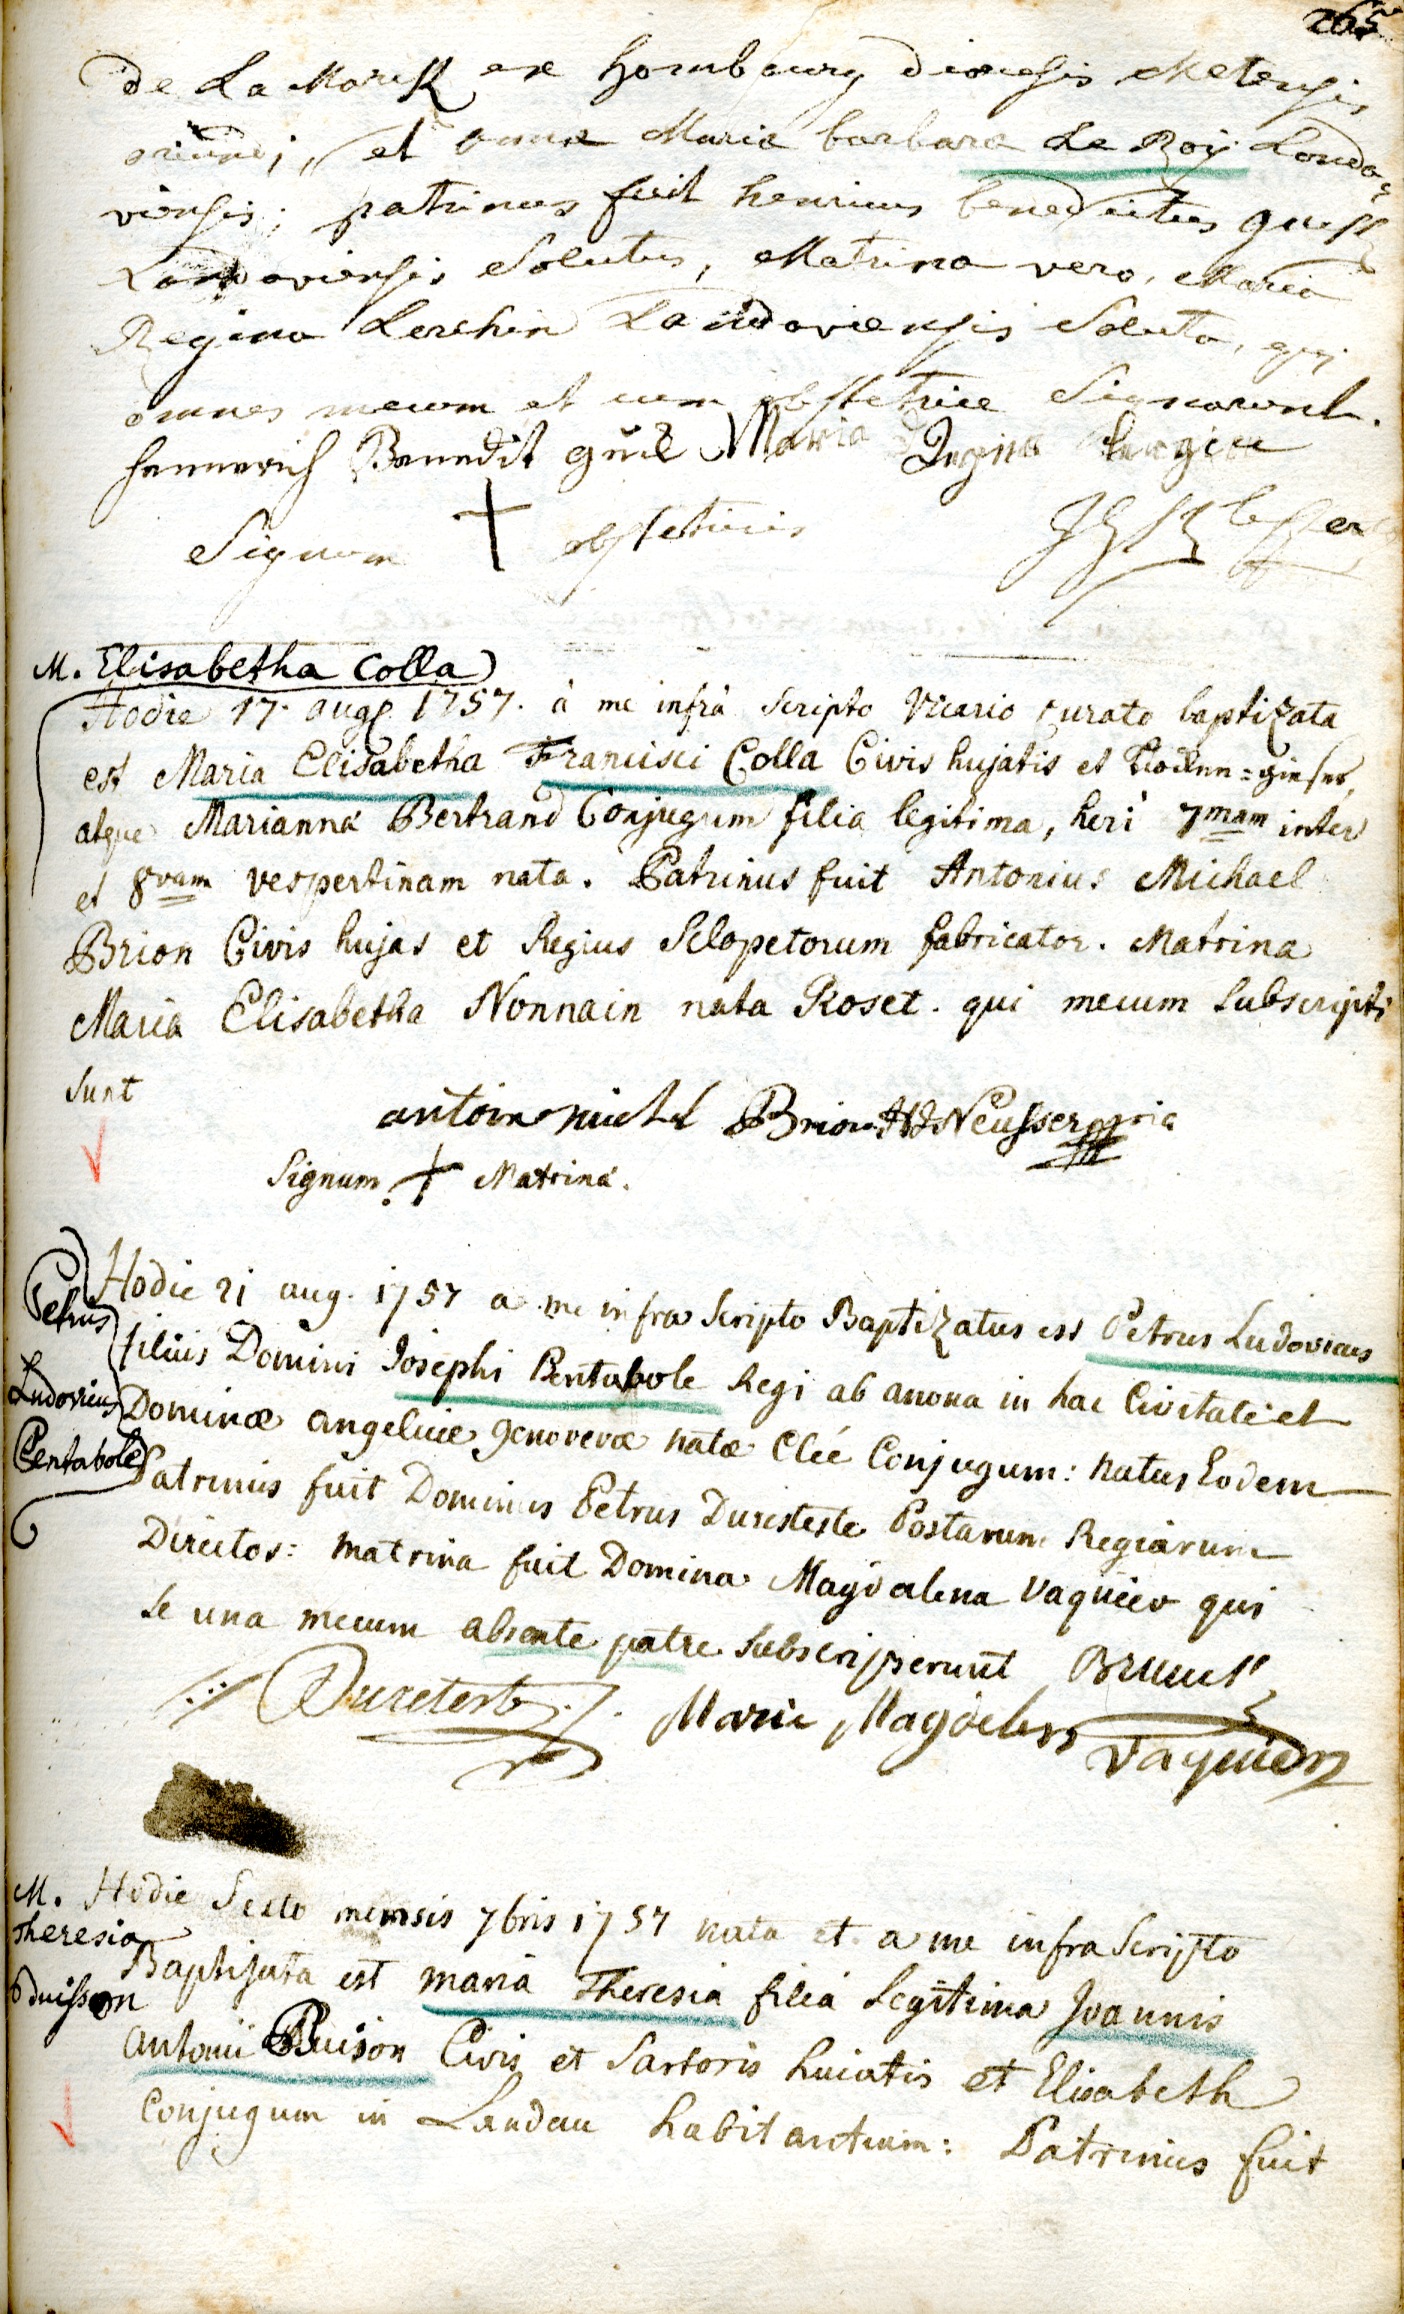 265
de La Marck ex hombourg dioecesis Metensis
oriundi, et annae Maria barbara Le Roy Landa-
viensis; patrinus fuit henricus benedictus
Landaviensis Solutus, Matrina vero, Maria
Regina Lerchin Landaviensis Soluta, qui
omnes mecum et cum obstetrice Signarunt.
Bennedit Maria Regina
Signum + obstetricis
M. Elisabetha Colla
Hodie 17. augs 1757. à me infrà Scripto Vicario Curato baptizata
est Maria Elisabetha Francisci Colla Civis hujatis et
atque Marianna Bertrand Conjugum filia legitima, heri 7mam inter
et 8vam vespertinam nata. Patrinus fuit Antonius Michael
Brion Civis hujas et Regius Sclopetorum fabricator. Matrina
Maria Elisabetha Nonnain nata Roset. qui mecum Subscripti
Sunt
antoin michel Brion Neusser
Signum + Matrina.
Petrus
Ludovicus
Pentabole
Hodie 21 aug. 1757 a me infra Scripto Baptizatus est Petrus Ludovicus
filius Domini Josephi Pentabole Regi ab anona in hac Civitate et
Dominæ angelicæ genovevæ natæ Cleé Conjugum: natus Eodem
Patrinus fuit Dominus Petrus Duresteste Postarum Regiarum
Director: matrina fuit Domina Magdalena Vaquier qui
se una mecum absente patre Subscripserunt
Dureteste Marie Magdelen
Vaquier
M.
Theresia
Buisson
Hodie Sexto mensis 7bris 1757 nata et a me infra Scripto
Baptizata est maria Theresia filia Legitima Joannis
Antonii Buison Civis et Sartoris huiatis et Elisabeth
Conjugum in Landau habitantium: Patrinus fuit